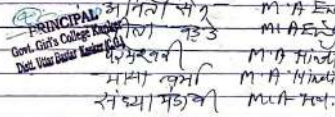 आरती सेन M.A En
PRINCIPAL
Govt. Girl's College Kanker
Distt. Uttar Bastar Kanker (C.G.)
M.A En
परमेश्वरी M.A Hindi
माया वर्मा M.A Hindi
संध्या मंडावी M.A